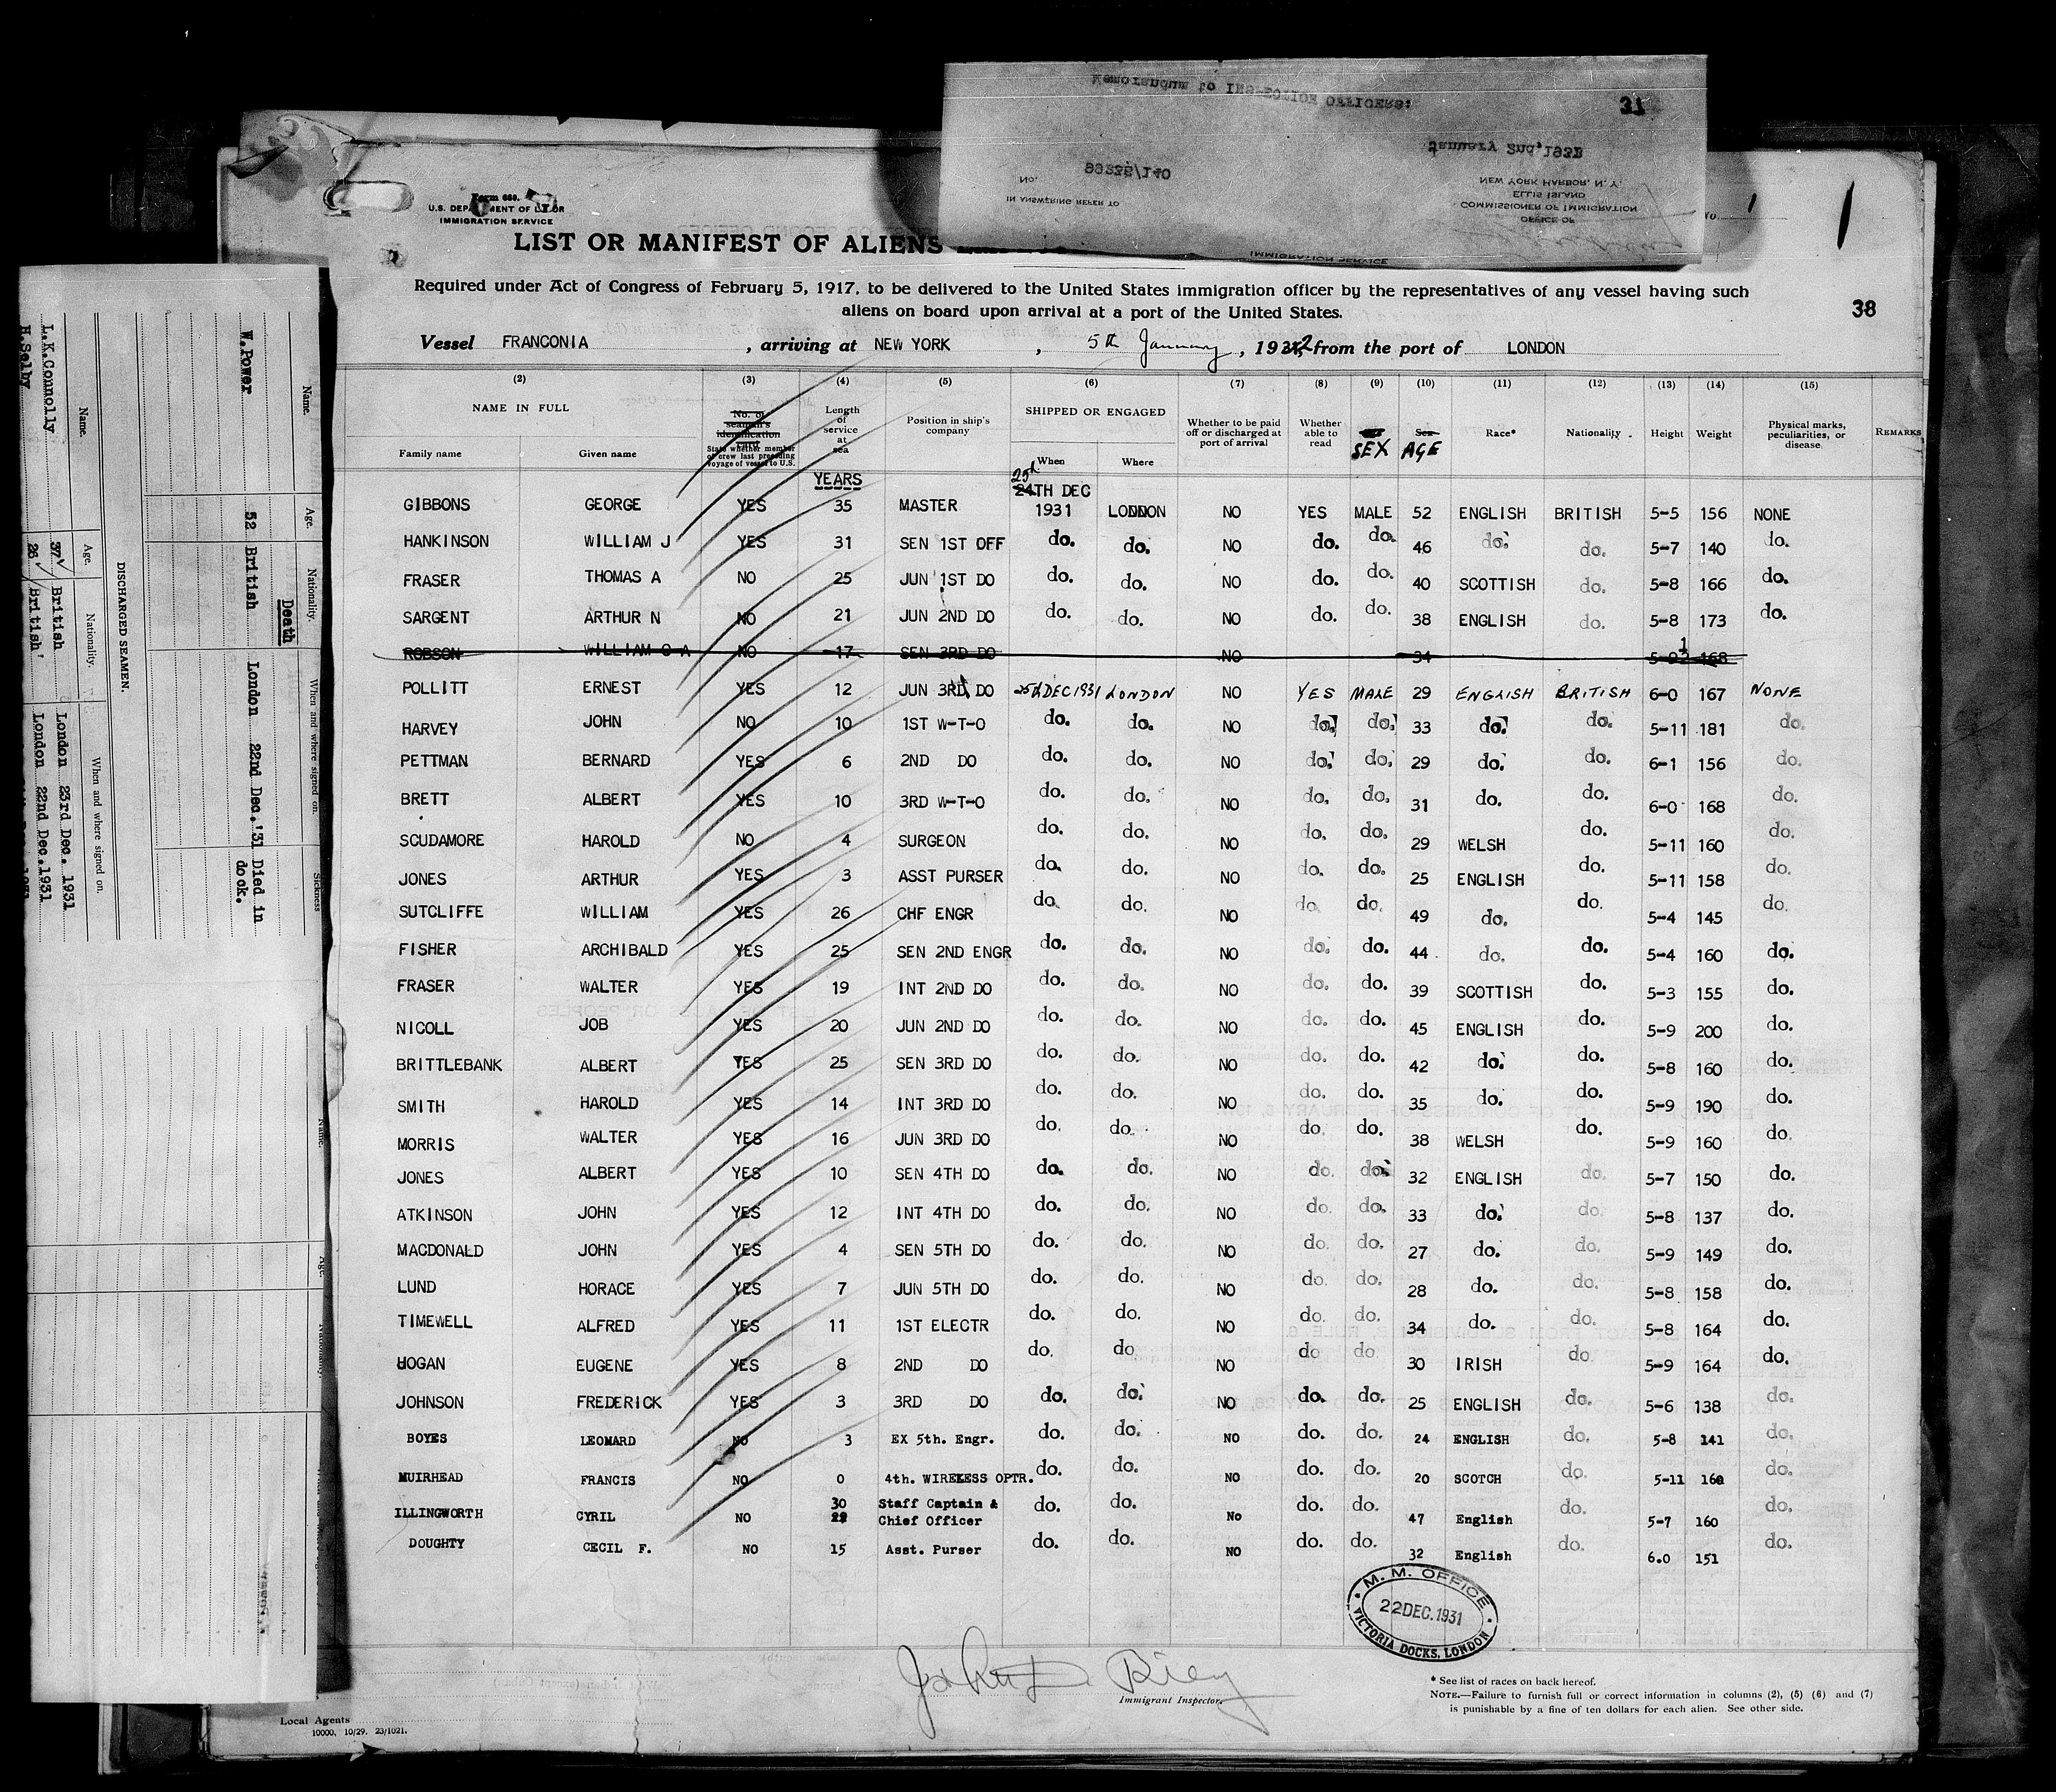 Memorandum to INSPECTION OFFICERS:
37
January 2nd, 1932
No. 99236/140
IN ANSWERING REFER TO
NEW YORK HARBOR, N. Y.
ELLIS ISLAND
COMMISSIONER OF IMMIGRATION
OFFICE OF
IMMIGRATION SERVICE
No. 1
1
Form 680.
U.S. DEPARTMENT OF LABOR
IMMIGRATION SERVICE
LIST OR MANIFEST OF ALIENS
Required under Act of Congress of February 5, 1917, to be delivered to the United States immigration officer by the representatives of any vessel having such
aliens on board upon arrival at a port of the United States.
38
Vessel FRANCONIA , arriving at NEW YORK , 5th January , 1932 from the port of LONDON
(2) (3) (4) (5) (6) (7) (8) (9) (10) (11) (12) (13) (14) (15)
NAME IN FULL
Family name Given name
No. of seaman's identification card
State whether member of crew last preceding voyage of vessel to U.S.
Length of service at sea
Position in ship's company
SHIPPED OR ENGAGED
When Where
Whether to be paid off or discharged at port of arrival
Whether able to read
SEX
Sex AGE
Race*
Nationality.
Height
Weight
Physical marks, peculiarities, or disease
REMARKS
YEARS
25th
24TH DEC
GIBBONS GEORGE YES 35 MASTER 1931 LONDON NO YES MALE 52 ENGLISH BRITISH 5-5 156 NONE
HANKINSON WILLIAM J YES 31 SEN 1ST OFF do. do. NO do. do. 46 do. do. 5-7 140 do.
FRASER THOMAS A NO 25 JUN 1ST DO do. do. NO do. do. 40 SCOTTISH do. 5-8 166 do.
SARGENT ARTHUR N NO 21 JUN 2ND DO do. do. NO do. do. 38 ENGLISH do. 5-8 173 do.
ROBSON WILLIAM O A NO 17 SEN 3RD DO NO 34 5-9½ 168
POLLITT ERNEST YES 12 JUN 3RD DO 25th DEC 1931 LONDON NO YES MALE 29 ENGLISH BRITISH 6-0 167 NONE
HARVEY JOHN NO 10 1ST W-T-O do. do. NO do. do. 33 do. do. 5-11 181 do.
PETTMAN BERNARD YES 6 2ND DO do. do. NO do. do. 29 do. do. 6-1 156 do.
BRETT ALBERT YES 10 3RD W-T-O do. do. NO do. do. 31 do. do. 6-0 168 do.
SCUDAMORE HAROLD NO 4 SURGEON do. do. NO do. do. 29 WELSH do. 5-11 160 do.
JONES ARTHUR YES 3 ASST PURSER do. do. NO do. do. 25 ENGLISH do. 5-11 158 do.
SUTCLIFFE WILLIAM YES 26 CHF ENGR do. do. NO do. do. 49 do. do. 5-4 145 do.
FISHER ARCHIBALD YES 25 SEN 2ND ENGR do. do. NO do. do. 44 do. do. 5-4 160 do.
FRASER WALTER YES 19 INT 2ND DO do. do. NO do. do. 39 SCOTTISH do. 5-3 155 do.
NICOLL JOB YES 20 JUN 2ND DO do. do. NO do. do. 45 ENGLISH do. 5-9 200 do.
BRITTLEBANK ALBERT YES 25 SEN 3RD DO do. do. NO do. do. 42 do. do. 5-8 160 do.
SMITH HAROLD YES 14 INT 3RD DO do. do. NO do. do. 35 do. do. 5-9 190 do.
MORRIS WALTER YES 16 JUN 3RD DO do. do. NO do. do. 38 WELSH do. 5-9 160 do.
JONES ALBERT YES 10 SEN 4TH DO do. do. NO do. do. 32 ENGLISH do. 5-7 150 do.
ATKINSON JOHN YES 12 INT 4TH DO do. do. NO do. do. 33 do. do. 5-8 137 do.
MACDONALD JOHN YES 4 SEN 5TH DO do. do. NO do. do. 27 do. do. 5-9 149 do.
LUND HORACE YES 7 JUN 5TH DO do. do. NO do. do. 28 do. do. 5-8 158 do.
TIMEWELL ALFRED YES 11 1ST ELECTR do. do. NO do. do. 34 do. do. 5-8 164 do.
HOGAN EUGENE YES 8 2ND DO do. do. NO do. do. 30 IRISH do. 5-9 164 do.
JOHNSON FREDERICK YES 3 3RD DO do. do. NO do. do. 25 ENGLISH do. 5-6 138 do.
BOYES LEONARD NO 3 EX 5th. Engr. do. do. NO do. do. 24 ENGLISH do. 5-8 141 do.
MUIRHEAD FRANCIS NO 0 4th. WIRELESS OPTR. do. do. NO do. do. 20 SCOTCH do. 5-11 160 do.
ILLINGWORTH CYRIL NO 30 Staff Captain & Chief Officer do. do. No do. do. 47 English do. 5-7 160 do.
DOUGHTY CECIL F. NO 15 Asst. Purser do. do. NO do. do. 32 English do. 6.0 151 do.
M. M. OFFICE
22 DEC. 1931
VICTORIA DOCKS, LONDON
Immigrant Inspector.
* See list of races on back hereof.
NOTE.—Failure to furnish full or correct information in columns (2), (5) (6) and (7)
is punishable by a fine of ten dollars for each alien. See other side.
Local Agents
10000. 10/29. 23/1021.
Name. Age. Nationality. When and where signed on. Sickness
Death
W.Power 52 British London 22nd Dec.'31 Died in
dock.
DISCHARGED SEAMEN.
Name. Age. Nationality. When and where signed on.
L.K.Connolly 37 British London 23rd Dec. 1931
H.Selby 26 British London 22nd Dec.1931
Name. Age. Nationality.